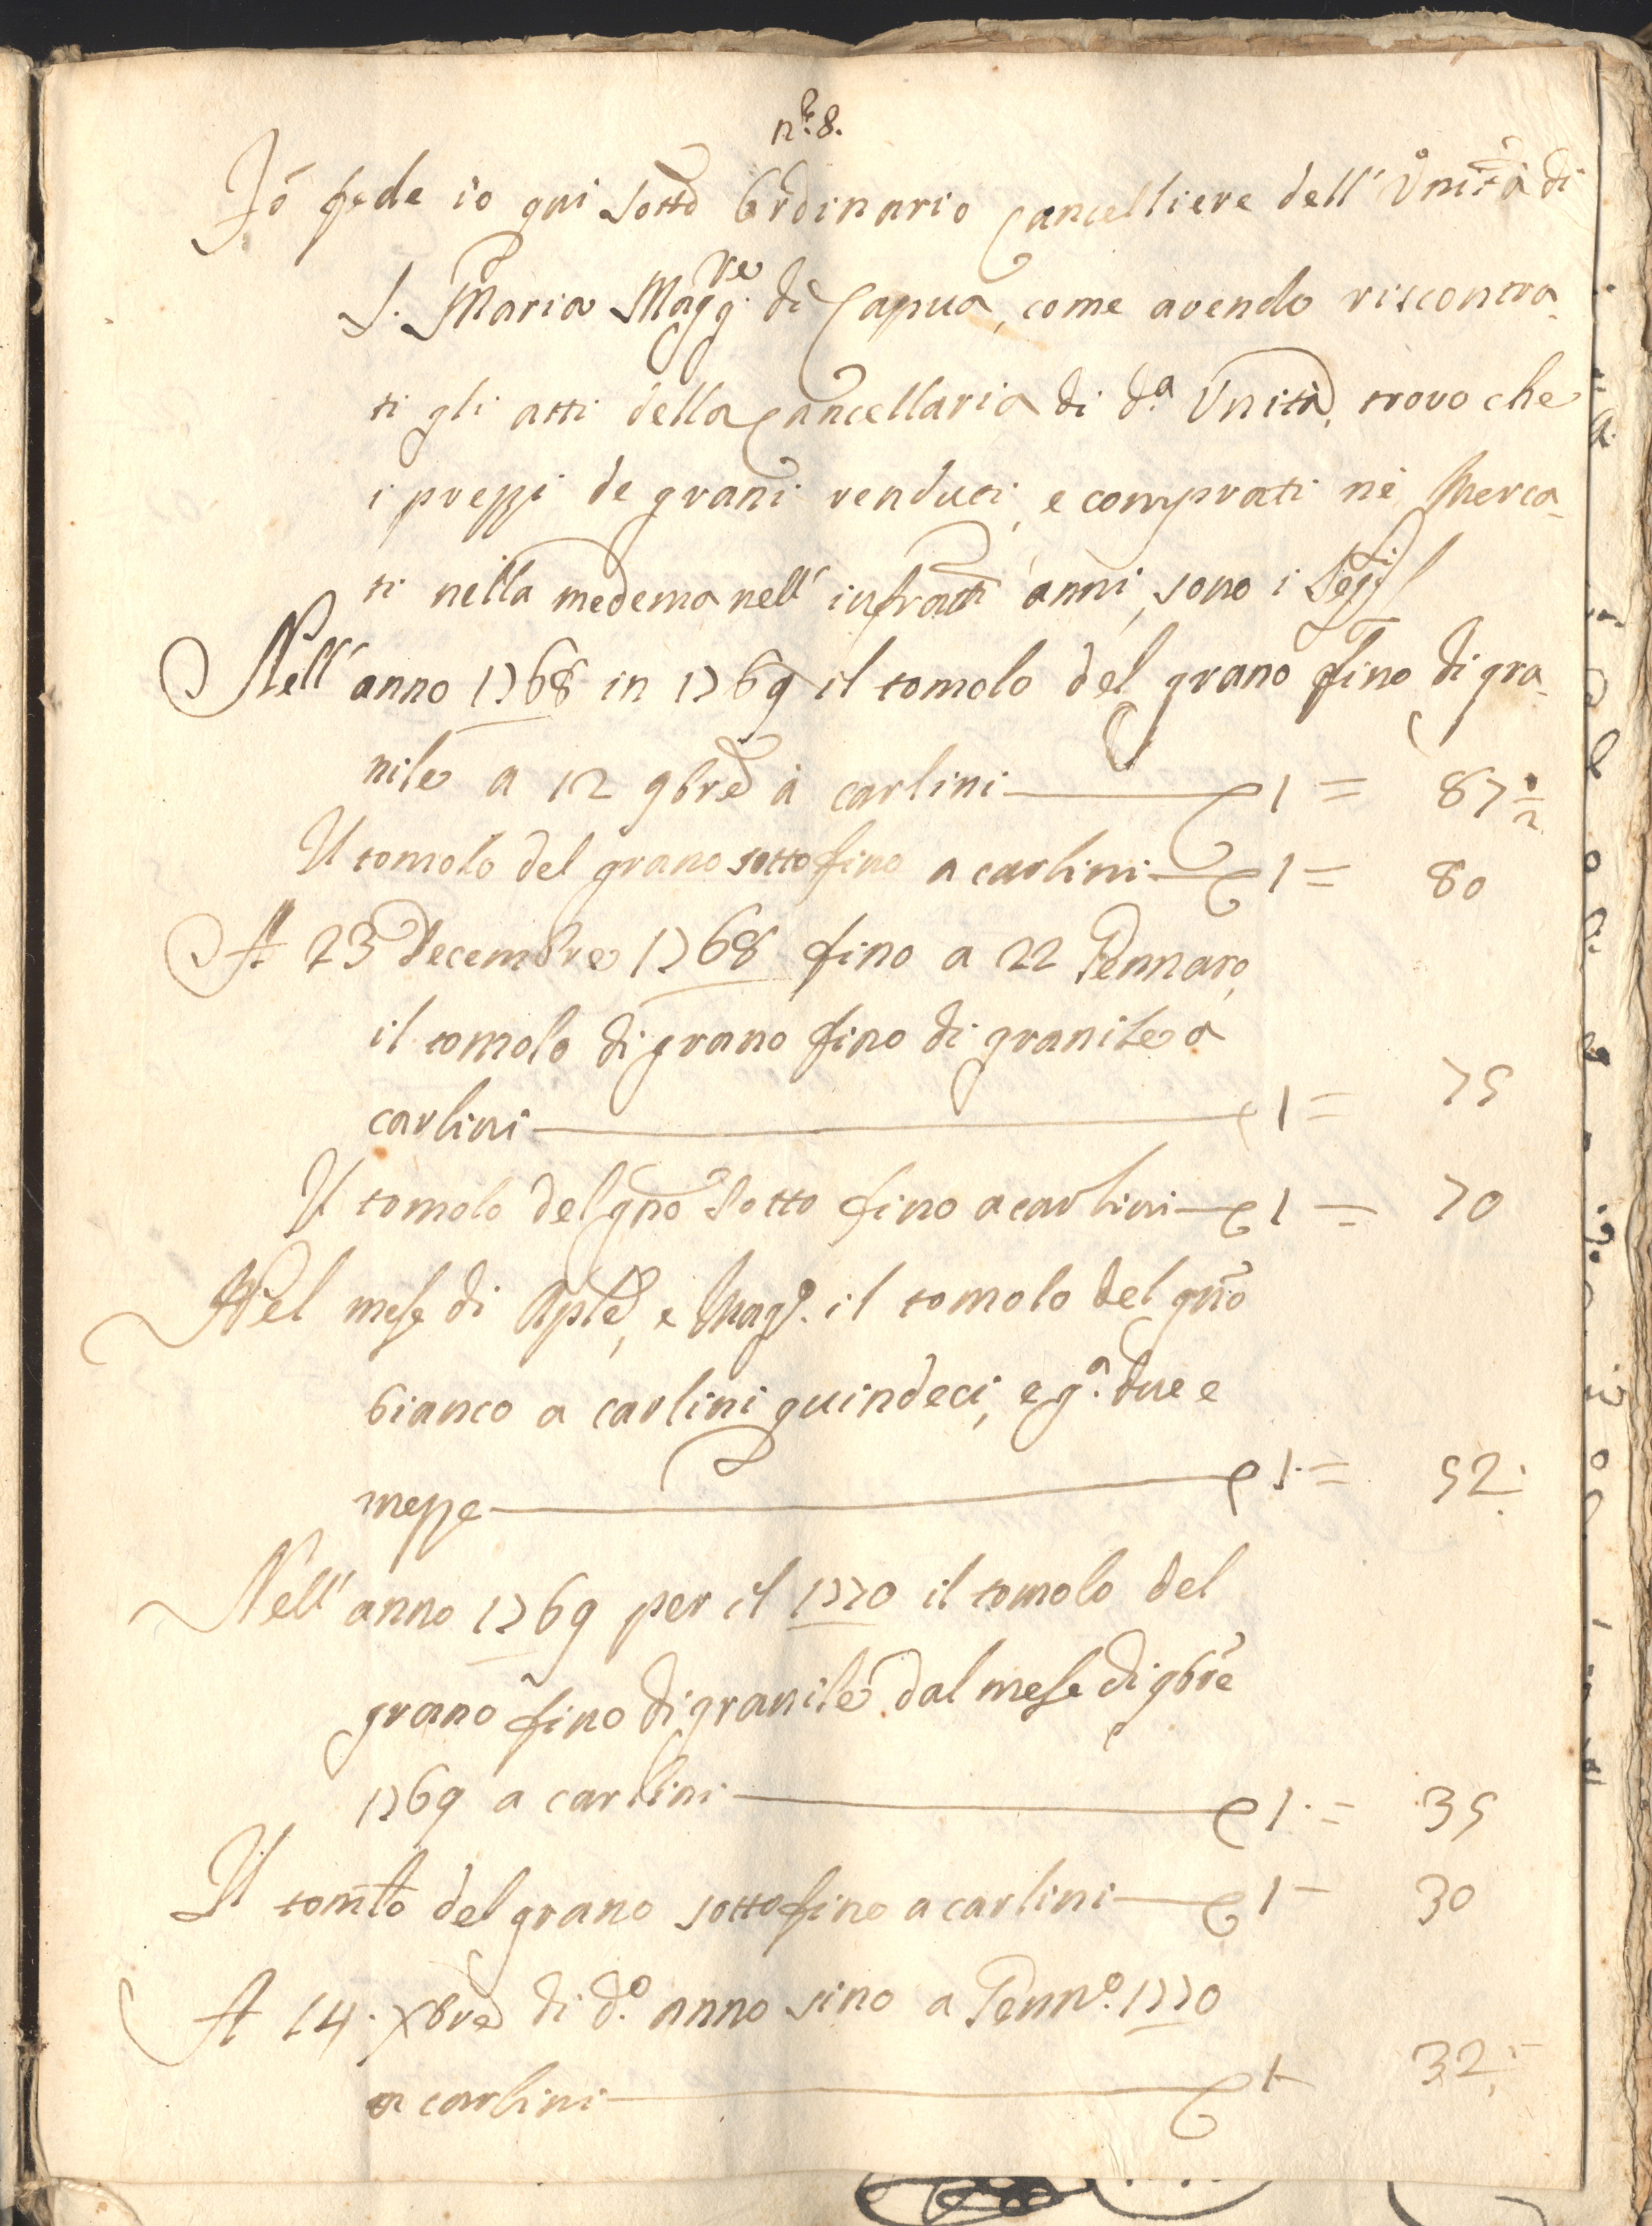 n.º 8.
Fò fede io qui sottõ Ordinario Cancelliere dell' Unità di
S. Maria Magg.re di Capua, come avendo riscontra-
ti gli atti della Cancellaria di d.ª Unità, trovo che
i prezzi de grani venduti, e comprati ne' Merca-
ti nella medema nell' infratti anni, sono i Segt.i
Nell' anno 1768 in 1769 il tomolo del grano fino di gra-
nile a 12 9bre à carlini — 1 = 87 ½
Il tomolo del grano sotto fino a carlini — 1 = 80
A 23 Decembre 1768 fino a 22 Gennaro,
il tomolo di grano fino di granile a
carlini — 1 = 75
Il tomolo del gño sotto fino a carlini — 1 = 70
Nel mese di Aple, e Magº. il tomolo del gño
bianco a carlini quindeci, e g.ª due e
mezze — 1 = 52
Nell' anno 1769 per il 1770 il tomolo del
grano fino di granile dal mese di 9bre
1769 a carlini — 1 = 35
Il tomlo del grano sotto fino a carlini — 1 - 30
A 14. Xbre di d.º anno sino a Genn.º 1770
a carlini — 1 32